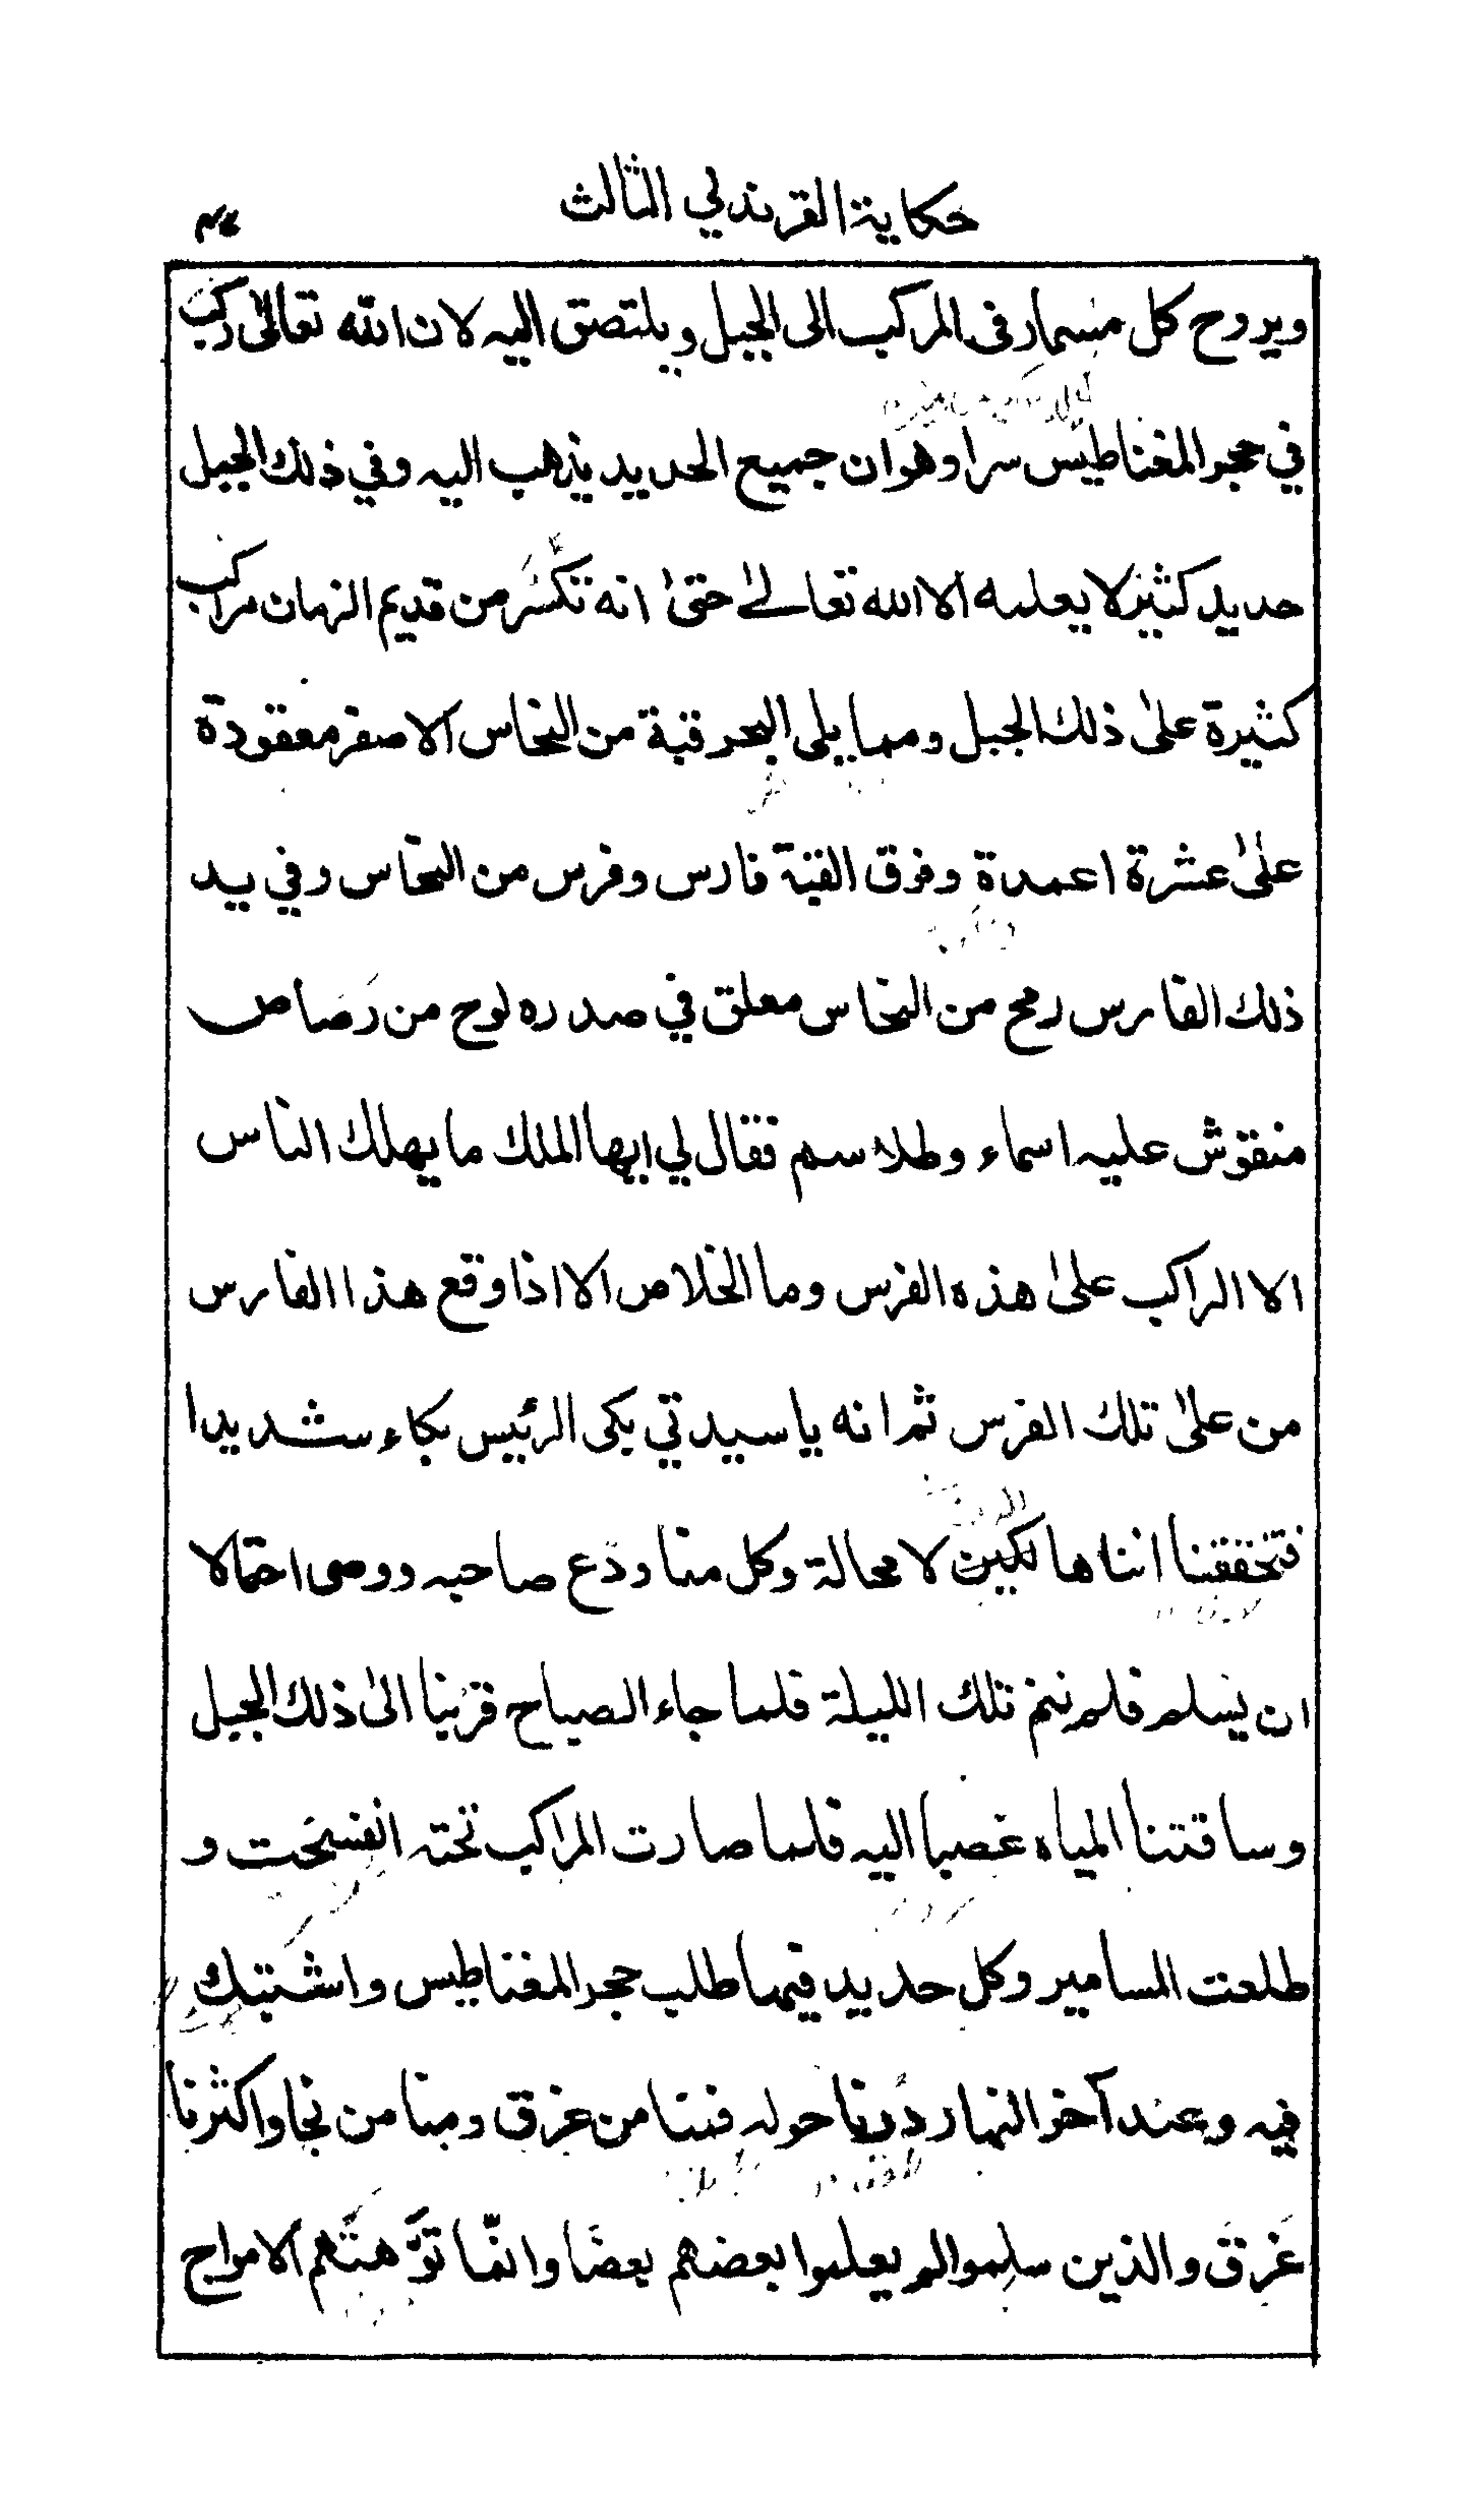 حكاية القرندلي الثالث
ويروح كل مسمار فى المركب الى الجبل ويلتصق اليه لان الله تعالى ركب
في حجر المغناطيس سرا وهوان جميع الحديد يذهب اليه وفي ذلك الجبل
حديد كثير لا يعلمه الا الله تعالى حتى انه تكسر من قديم الزمان مراكب
كثيرة على ذلك الجبل ومما يلى البحر قبة من النحاس الاصفر معقودة
على عشرة اعمدة وفوق القبة فارس وفرس من النحاس وفي يد
ذلك الفارس رمح من النحاس معلق في صدره لوح من رصاص
منقوش عليه اسماء وطلاسم فقال لي ايها الملك ما يهلك الناس
الا الراكب على هذه الفرس وما الخلاص الا اذا وقع هذا الفارس
من على تلك الفرس ثم انه يا سيدتي بكى الرئيس بكاء شديدا
فتحققنا اننا هالكين لا محالة وكل منا ودع صاحبه ووصى احتمالا
ان يسلم فلم ننم تلك الليلة فلما جاء الصباح قربنا الى ذلك الجبل
وساقتنا المياه غصبا اليه فلما صارت المراكب تحته انفسحت و
طلعت المسامير وكل حديد فيها طلب حجر المغناطيس واشتبك
فيه وعند آخر النهار درنا حوله فمنا من غرق ومنا من نجا واكثرنا
غرق والذين سلموا لم يعلموا بعضهم بعضا وانما توهتهم الامواج